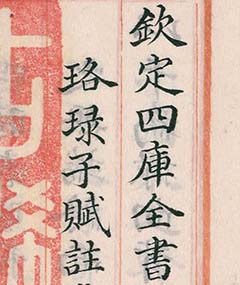 欽定四庫全書
珞琭子賦註